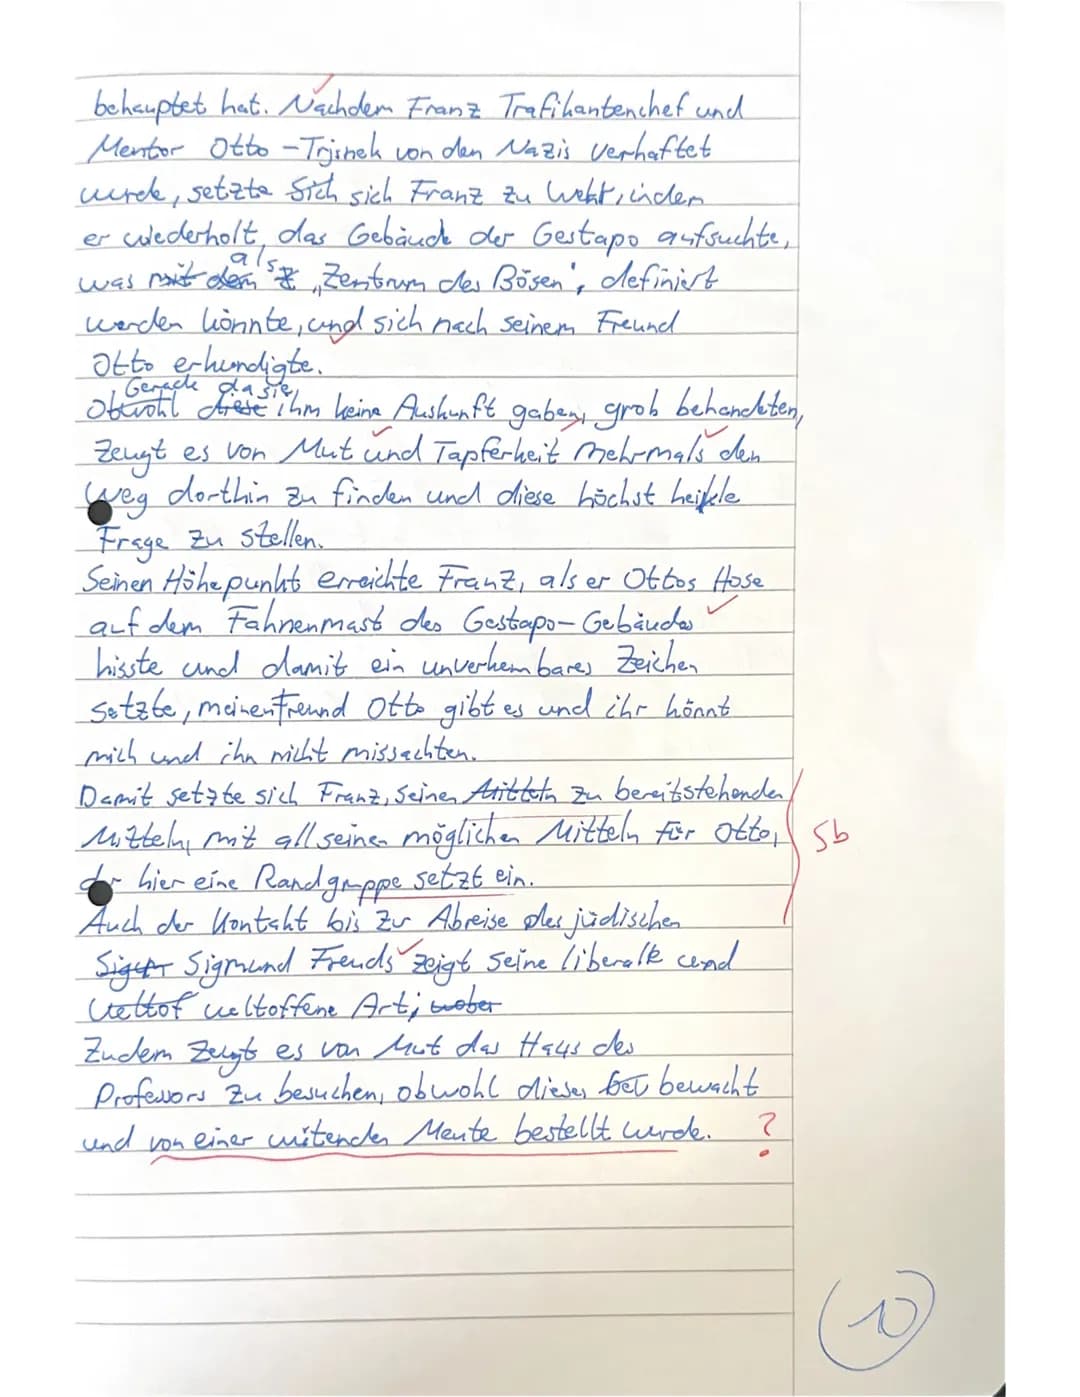 behauptet hat. Nachdem Franz Trafikantenchef und
Mentor Otto-Trjsnek von den Nazis verhaftet
wurde, setzte sich sich Franz zu Wehr, indem
er wiederholt, das Gebäude der Gestapo aufsuchte,
als
was mit dem "Zentrum des Bösen", definiert
werden könnte, und sich nach seinem Freund
Otto erkundigte.
Gerade da sie,
Obwohl diese ihm keine Auskunft gaben, grob behandelten,
zeugt es von Mut und Tapferkeit mehrmals den
Weg dorthin zu finden und diese höchst heikle
Frage zu stellen.
Seinen Höhepunkt erreichte Franz, als er Ottos Hose
auf dem Fahnenmast des Gestapo-Gebäudes
hisste und damit ein unverkennbares Zeichen
setzte, meinen Freund Otto gibt es und ihr könnt
mich und ihn nicht missachten.
Damit setzte sich Franz, seinen zu bereitstehenden
Mitteln, mit all seinen möglichen Mitteln für Otto, Sb
der hier eine Randgruppe setzt ein.
Auch der Kontakt bis zur Abreise des jüdischen
Sigmund Freuds zeigt seine liberale und
Weltof weltoffene Art; wobei
Zudem zeugt es von Mut das Haus des
Professors zu besuchen, obwohl dieses bewacht
und von einer wütenden Meute bestellt wurde. ?
10